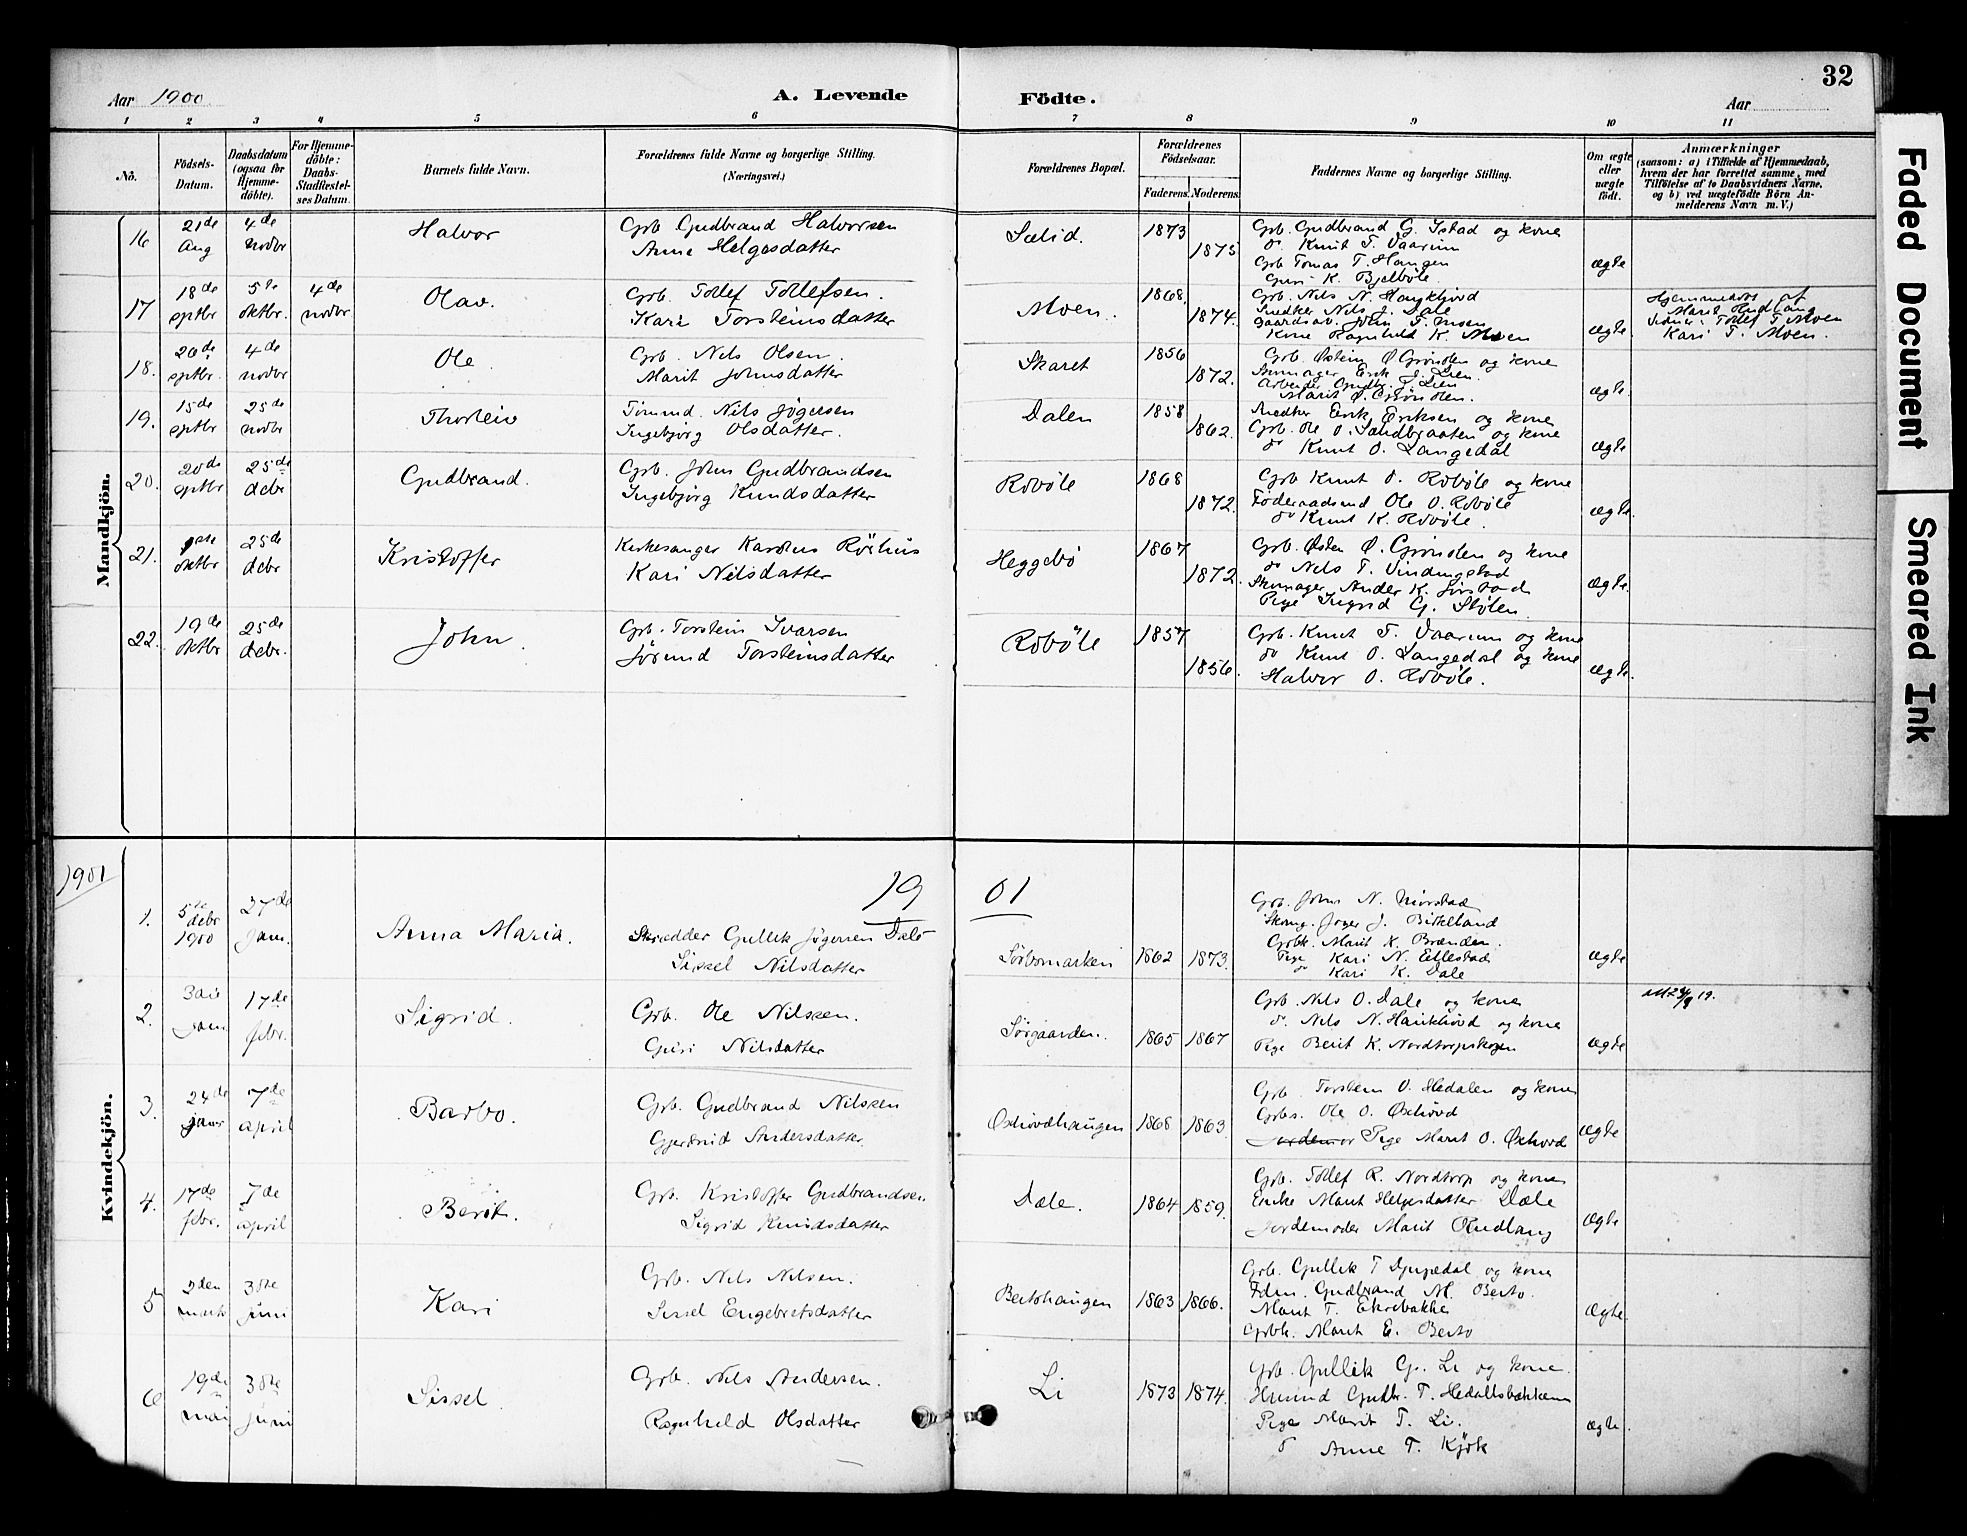 32
Aar 1900
A. Levende Födte.
Aar
1 2 3 4 5 6 7 8 9 10 11
No.
Födsels-Datum.
Daabsdatum (ogsaa for Hjemme-döbte).
For Hjemme-döbte: Daabs-Stadfæstel-ses Datum.
Barnets fulde Navn.
Forældrenes fulde Navne og borgerlige Stilling. (Næringsvei.)
Forældrenes Bopæl.
Forældrenes Födselsaar.
Faderens. Moderens.
Faddernes Navne og borgerlige Stilling.
Om ægte eller uægte födt.
Anmærkninger
(saasom: a) i Tilfælde af Hjemmedaab,
hvem der har forrettet samme, med
Tilföielse af to Daabsvidners Navne,
og b) ved uægtefödte Börn An-
melderens Navn m. V.)
Mandkjön.
16 21de Aug 4de novbr Halvor Grb Gudbrand Halvorsen
Anne Helgesdatter
Sælid. 1873 1875
Grb. Gudbrand G. Istad og kone
do Knut T. Vaarum
Grb Tomas T. Haugen
Guri K. Bjelbøle
ægte
17 18de sptbr 5te oktbr. 4de novbr Olav. Grb. Tollef Tollefsen.
Kari Torsteinsdatter
Moen. 1868. 1874.
Grb. Nils N. Haukhjovd
Snedker Nils J. Dale
Kone Ragnhild K. Moen
ægte.
Hjemmedøbt af
Marit Rudlang
Vidner: Tollef T. Moen
Kari T. Moen.
18. 20de sptbr. 4de novbr Ole Grb. Nils Olsen.
Marit Johnsdatter
Skaret 1856 1872.
Grb. Østein Ø. Grønolen og kone
Erik J. Lien.
Arbeider Gudbr. T. Lien
Marit Ø. Grønolen.
ægte.
19. 15de sptbr 25de novbr Thorleiv Tømmd. Nils Jøgersen
Ingebjørg Olsdatter.
Dalen 1858 1862.
Snedker Erik Eriksen og kone
Grb. Ole O. Sandbraaten og kone
do Knut O. Langedal
ægte
20. 20de sptbr 25de debr Gudbrand. Grb. John Gudbrandsen
Ingebjørg Knudsdatter
Robøle 1868 1872.
Grb Knut O. Robøle og kone
Føderaadsmd Ole O. Robøle
do Knut K. Robøle.
ægte.
21. oktbr 25de debr Kristoffer Kirkesanger Karolus Röthus
Kari Nilsdatter
Heggebø 1867 1872.
Grb. Østen Ø. Grønolen og kone
do Nils T. Vindingstad
Skomager Ander K. Jørstad
Pige Ingrid G. Støten
ægte
22. 19de oktbr 25de debr. John. Grb. Torstein Ivarsen
Jørund Torsteinsdatter
Robøle 1857 1856.
Grb. Knut T. Vaarum og kone
do Knut O. Langedal og kone
Halvor O. Robøle.
ægte.
1901
19 01
Kvindekjön.
1. 5te debr 1900 27de jan. Anna Maria. Skrædder Gullik Jøgersen Dale
Sissel Nilsdatter
Sørbomarken 1862 1873.
Grb. John N.
Skomg. Jøger J. Birkeland
Grbk. Marit K. Brænden.
Pige Kari N. Ellestad
do Kari K. Dale
ægte
2. 3die jan 17de febr. Sigrid. Grb. Ole Nilsen.
Guri Nilsdatter
Sørgaarden. 1865 1867
Grb. Nils O. Dale og kone
do. Nils N. Haukhovd og kone
Pige Berit K. Nordtorpskogen
ægte
3. 24de janr 7de april Barbo. Grb. Gudbrand Nilsen
Gjertrud Andersdatter.
Øxhovdhaugen 1868 1863.
Grb. Torstein O. Hedalen og kone
Grbs. Ole O. Øxhovd
Pige Marit O. Øxhovd
ægte
4. 17de febr. 7de april Berit. Grb. Kristoffer Gudbrandsen
Sigrid Knudsdatter
Dale. 1864 1859.
Grb. Tollef R. Nordtorp og kone
Enke Marit Helgesdatter Dale
Jordemoder Marit Rudlang
ægte
5 2den marts 3die juni Kari Grb. Nils Nilsen.
Sissel Engebretsdatter
Bertohaugen 1863 1866.
Grb. Gullik T Djupedal og kone
Fdm. Gudbrand M. Berto.
Marit T. Ekrebakke
Grbk. Marit E. Berto
ægte.
6 19de mai 3die juni Sissel Grb. Nils Andersen.
Ragnhild Olsdatter
Li 1873 1874.
Grb. Gullik G. Li og kone
Husmd Gudbr. T. Hedalsbakken
Pige Marit T. Li.
do Anne T. Kjøk
ægte
Faded Document
Smeared Ink